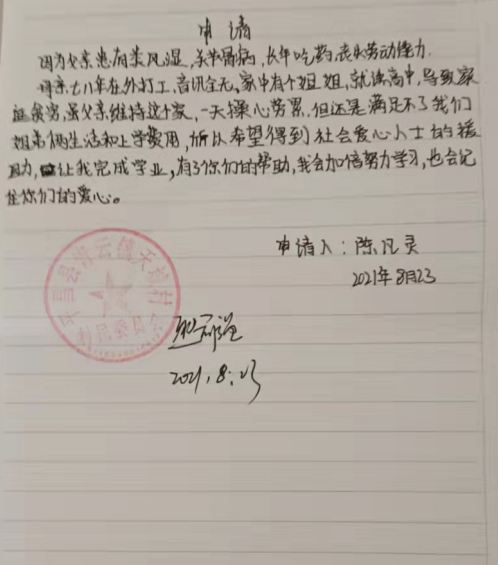 申请
因为父亲患有类风湿,关节骨病,长年吃药,丧失劳动能力.
母亲七八年在外打工,音讯全无,家中有个姐姐,就读高中,导致家
庭贫穷,虽父亲维持这个家,一天操心劳累,但还是满足不了我们
姐弟俩生活和上学费用,所以希望得到社会爱心人士的援
助,让我完成学业,有了你们的帮助,我会加倍努力学习,也会记
住你们的爱心。
申请人:陈凡灵
2021年8月23
平昌县 云镇天 村村民委员会
2021.8.23